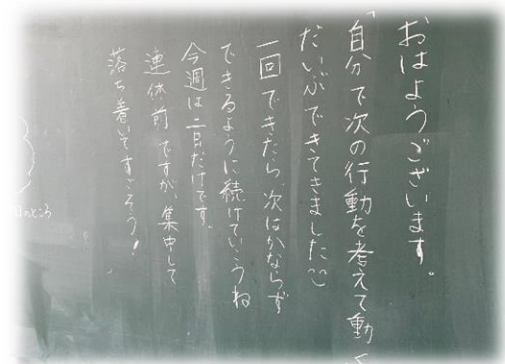 おはようございます。
「自分で次の行動を考えて動く
だいぶできてきました
一回できたら、次はかならず
できるように続けていこうね
今週は二日だけです。
連休前ですが、集中して
落ち着いてすごそう!
のところ